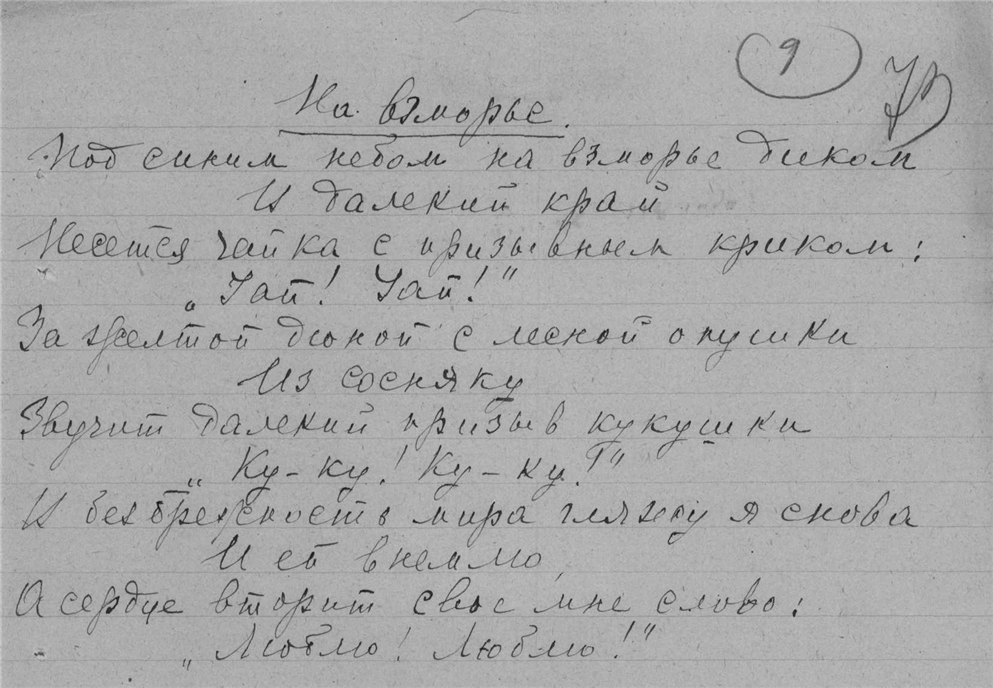 9
На взморье.
Под синим небом на взморье диком
И далекий край
Несется чайка с призывным криком:
„Чай! Чай!"
За желтой дюной с лесной опушки
Из сосняку
Звучит далекий призыв кукушки
„Ку-ку! Ку-ку!"
И безбрежность мира гляжу я снова
И ей внемлю,
А сердце вторит свое мне слово:
„Люблю! Люблю!"